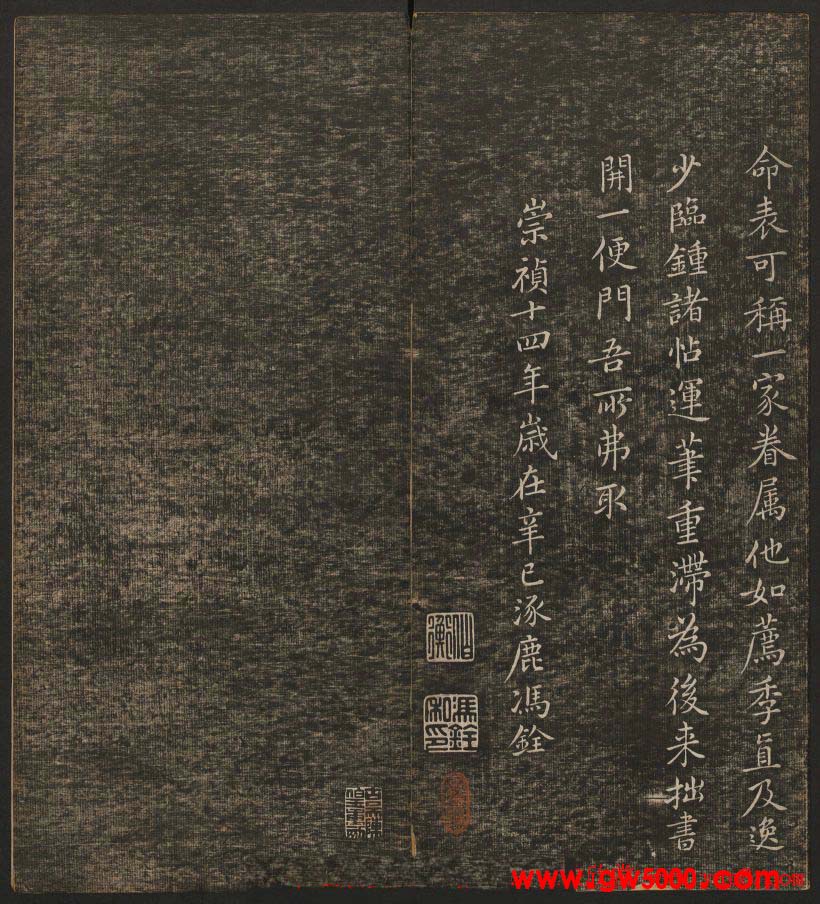 命表可稱一家眷属他如薦季直及逸
少臨鍾諸帖運筆重滯為後来拙書
開一便門吾所弗取
崇禎十四年歲在辛巳涿鹿馮銓
伯衡
馮銓私印
www.gw5000.com